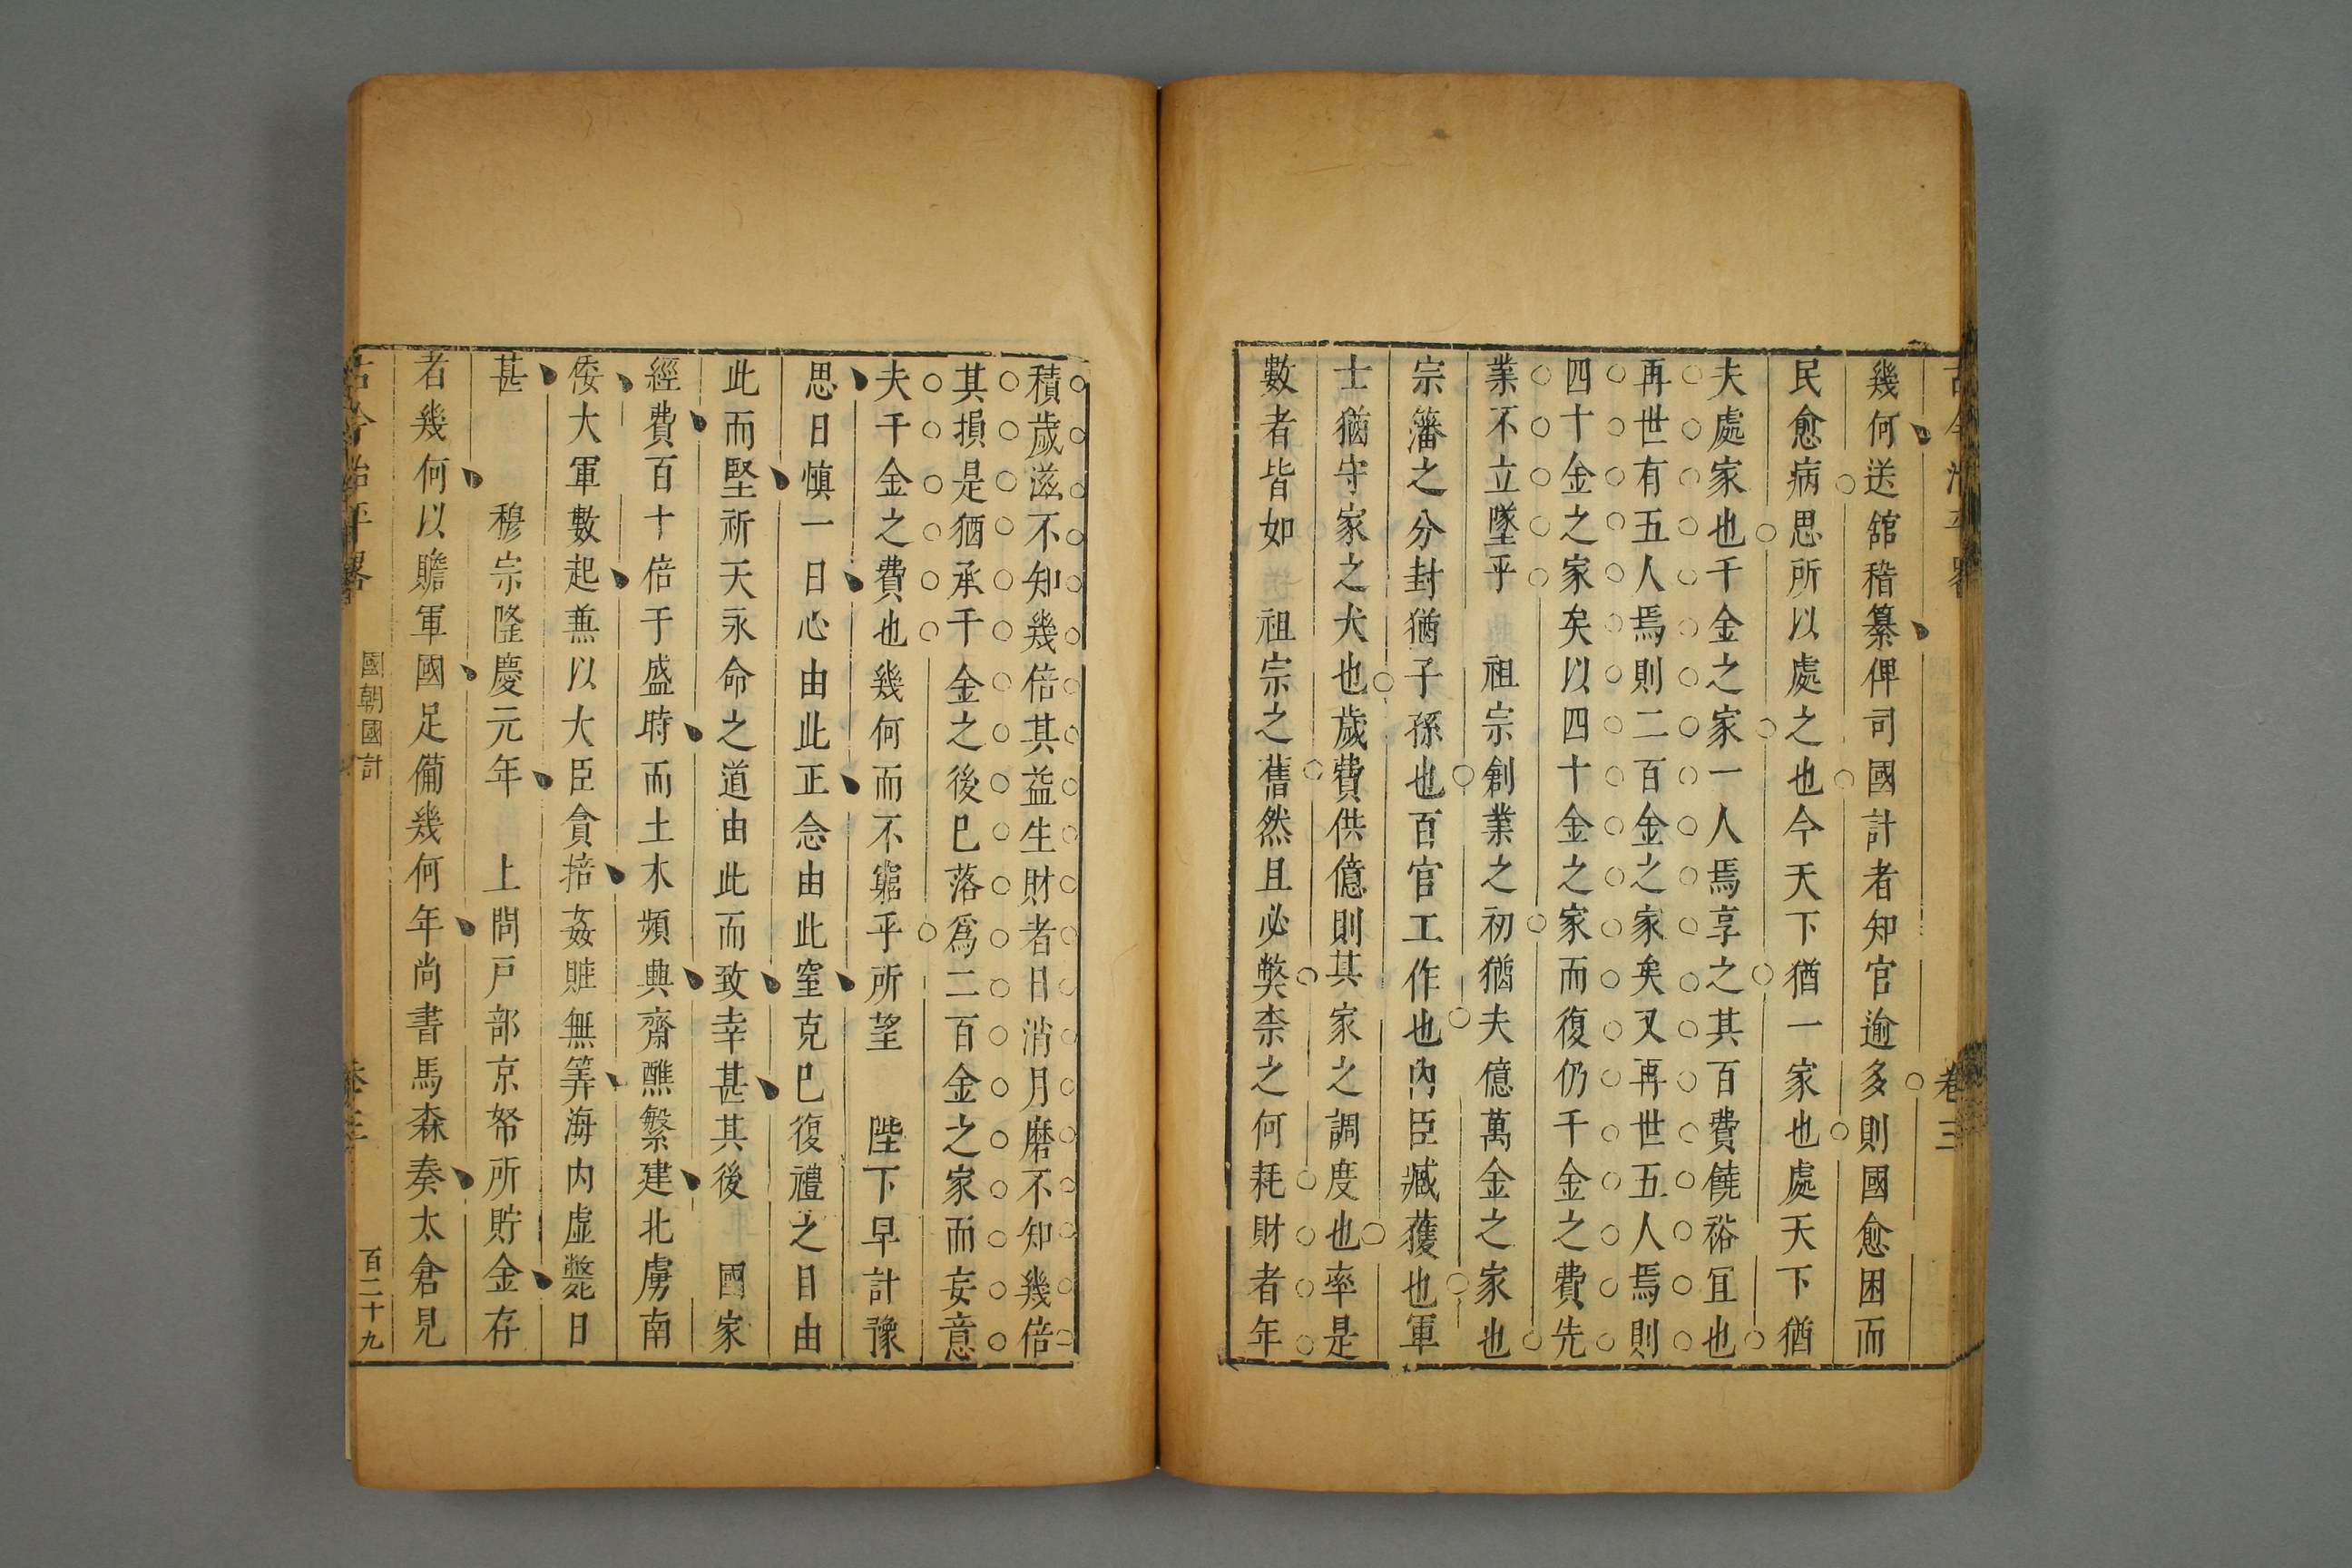 古今治平畧 卷三
幾何送舘稽纂俾司國計者知官逾多則國愈困而
民愈病思所以處之也今天下猶一家也處天下猶
夫處家也千金之家一人焉享之其百費饒裕宜也
再世有五人焉則二百金之家矣又再世五人焉則
四十金之家矣以四十金之家而復仍千金之費先
業不立墜乎 祖宗創業之初猶夫億萬金之家也
宗籓之分封猶子孫也百官工作也內臣臧獲也軍
士猶守家之犬也歲費供億則其家之調度也率是
數者皆如 祖宗之舊然且必弊柰之何耗財者年
積歲滋不知幾倍其益生財者日消月磨不知幾倍
其損是猶承千金之後已落爲二百金之家而妄意
夫千金之費也幾何而不窮乎所望 陛下早計豫
思日慎一日心由此正念由此窒克己復禮之目由
此而堅祈天永命之道由此而致幸甚其後 國家
經費百十倍于盛時而土木頻典齋醮繁建北虜南
倭大軍數起兼以大臣貪掊姦賍無筭海内虛斃日
甚 穆宗隆慶元年 上問戸部京帑所貯金存
者幾何以贍軍國足備幾何年尚書馬森奏太倉見
古今治平畧 國朝國計 卷三 百二十九